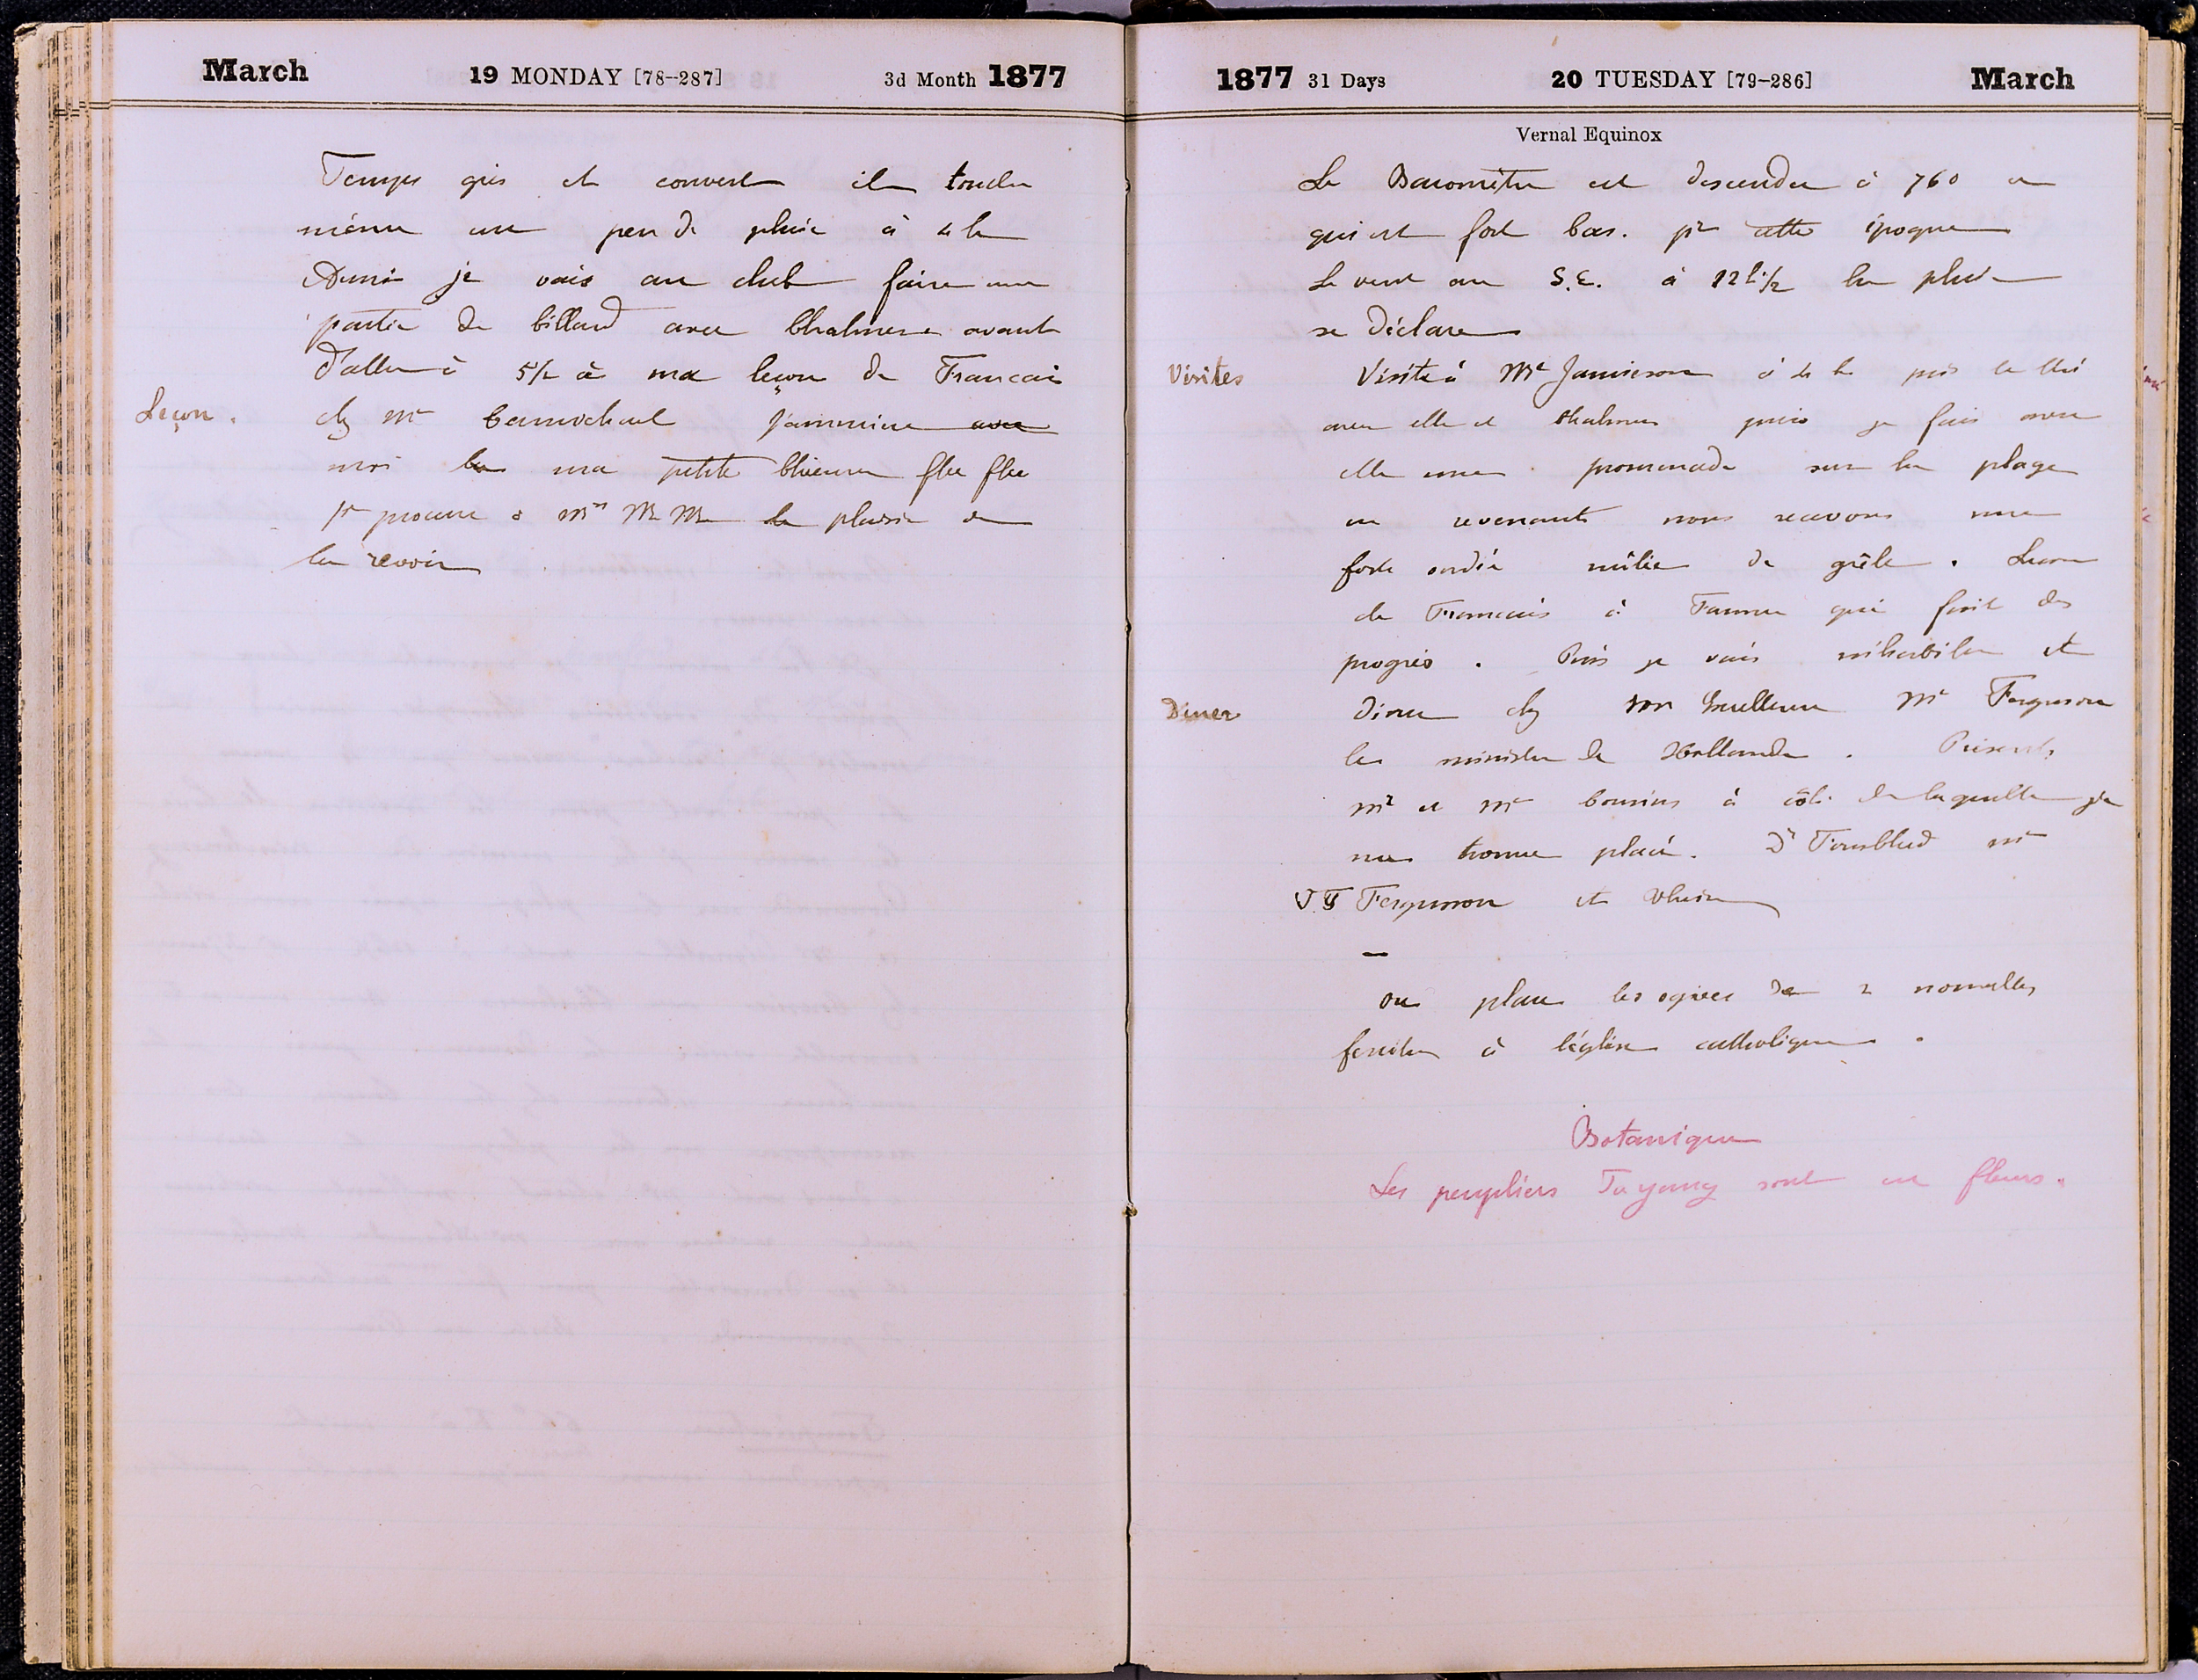 March 19 MONDAY [78-287] 3d Month 1877
Temps gris et couvert il tombe
même un peu de pluie à 4 h
Aussi je vais au club faire une
partie de billard avec Chalmers avant
d'aller à 5½ à ma leçon de Francais
Leçon.
chez Me Carmichael
moi ma petite chienne flu flu
pr procurer à le plaisir de
la revoir
1877 31 Days 20 TUESDAY [79-286] March
Vernal Equinox
Le Baromètre est descendu à 760 ce
qui est fort bas. pr cette époque
Le vent au S.E. à 12h½ la pluie
se déclare
Visites
Visite à Me Jamieson à 4 h pris le thé
avec elle et Chalmers puis je fais avec
elle une promenade sur la plage
en revenant nous recevons une
forte ondée mêlée de grêle. Lecon
de Francais à Fannie qui fait des
progrès. Puis je vais m'habiller et
Diner
diner chez son Excellence Mr Ferguson
le ministre de Hollande. Présents
Mr et Me Cousins à côté de laquelle je
me trouve placé. Dr Mr
J T Ferguson et
—
on place les ogives de 2 nouvelles
fenêtres à l'église catholique.
Botanique
Les peupliers Ta yang sont en fleurs.